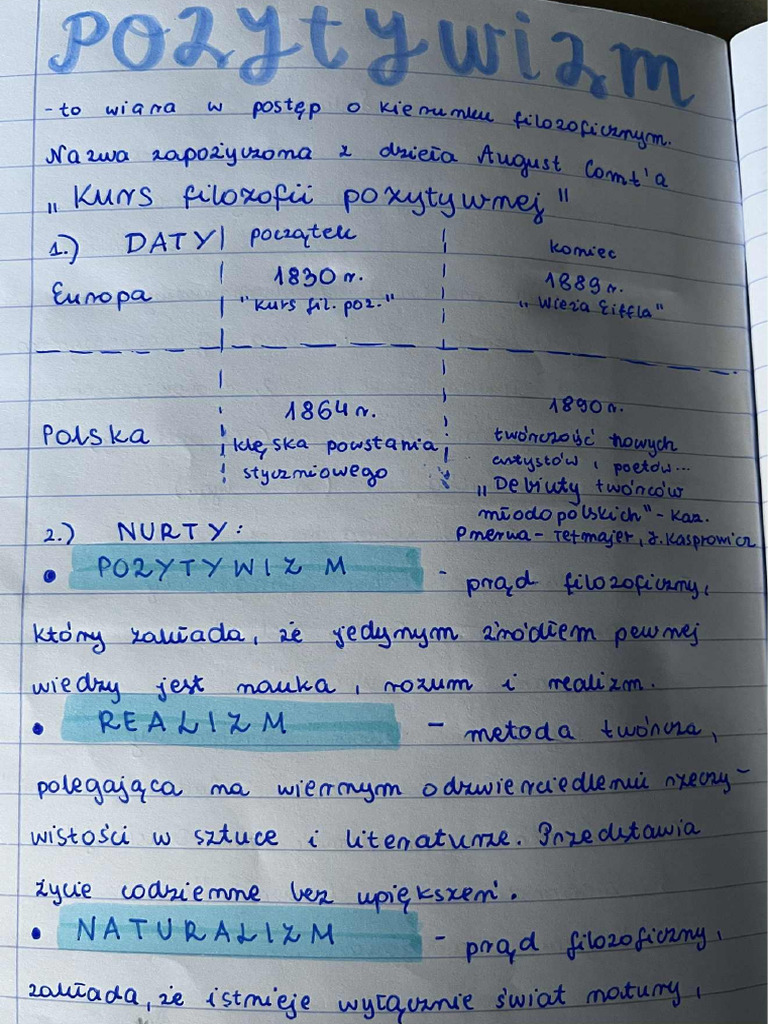 POZYTYWIZM
- to wiara w postęp o kierunku filozoficznym.
Nazwa zapożyczona z dzieła August Comt'a
„Kurs filozofii pozytywnej"
1.) DATY początek koniec
Europa 1830 r. 1889 r.
"Kurs fil. poz." „Wieża Eiffla"
Polska 1864 r. 1890 r.
klęska powstania twórczość nowych
styczniowego artystów i poetów...
„Debiuty twórców
młodopolskich" - Kaz.
2.) NURTY: Przerwa - Tetmajer, J. Kasprowicz
• POZYTYWIZM - prąd filozoficzny,
który zakłada, że jedynym źródłem pewnej
wiedzy jest nauka, rozum i realizm.
• REALIZM - metoda twórcza,
polegająca na wiernym odzwierciedleniu rzeczy-
wistości w sztuce i literaturze. Przedstawia
życie codzienne bez upiększeń.
• NATURALIZM - prąd filozoficzny,
zakłada, że istnieje wyłącznie świat natury,